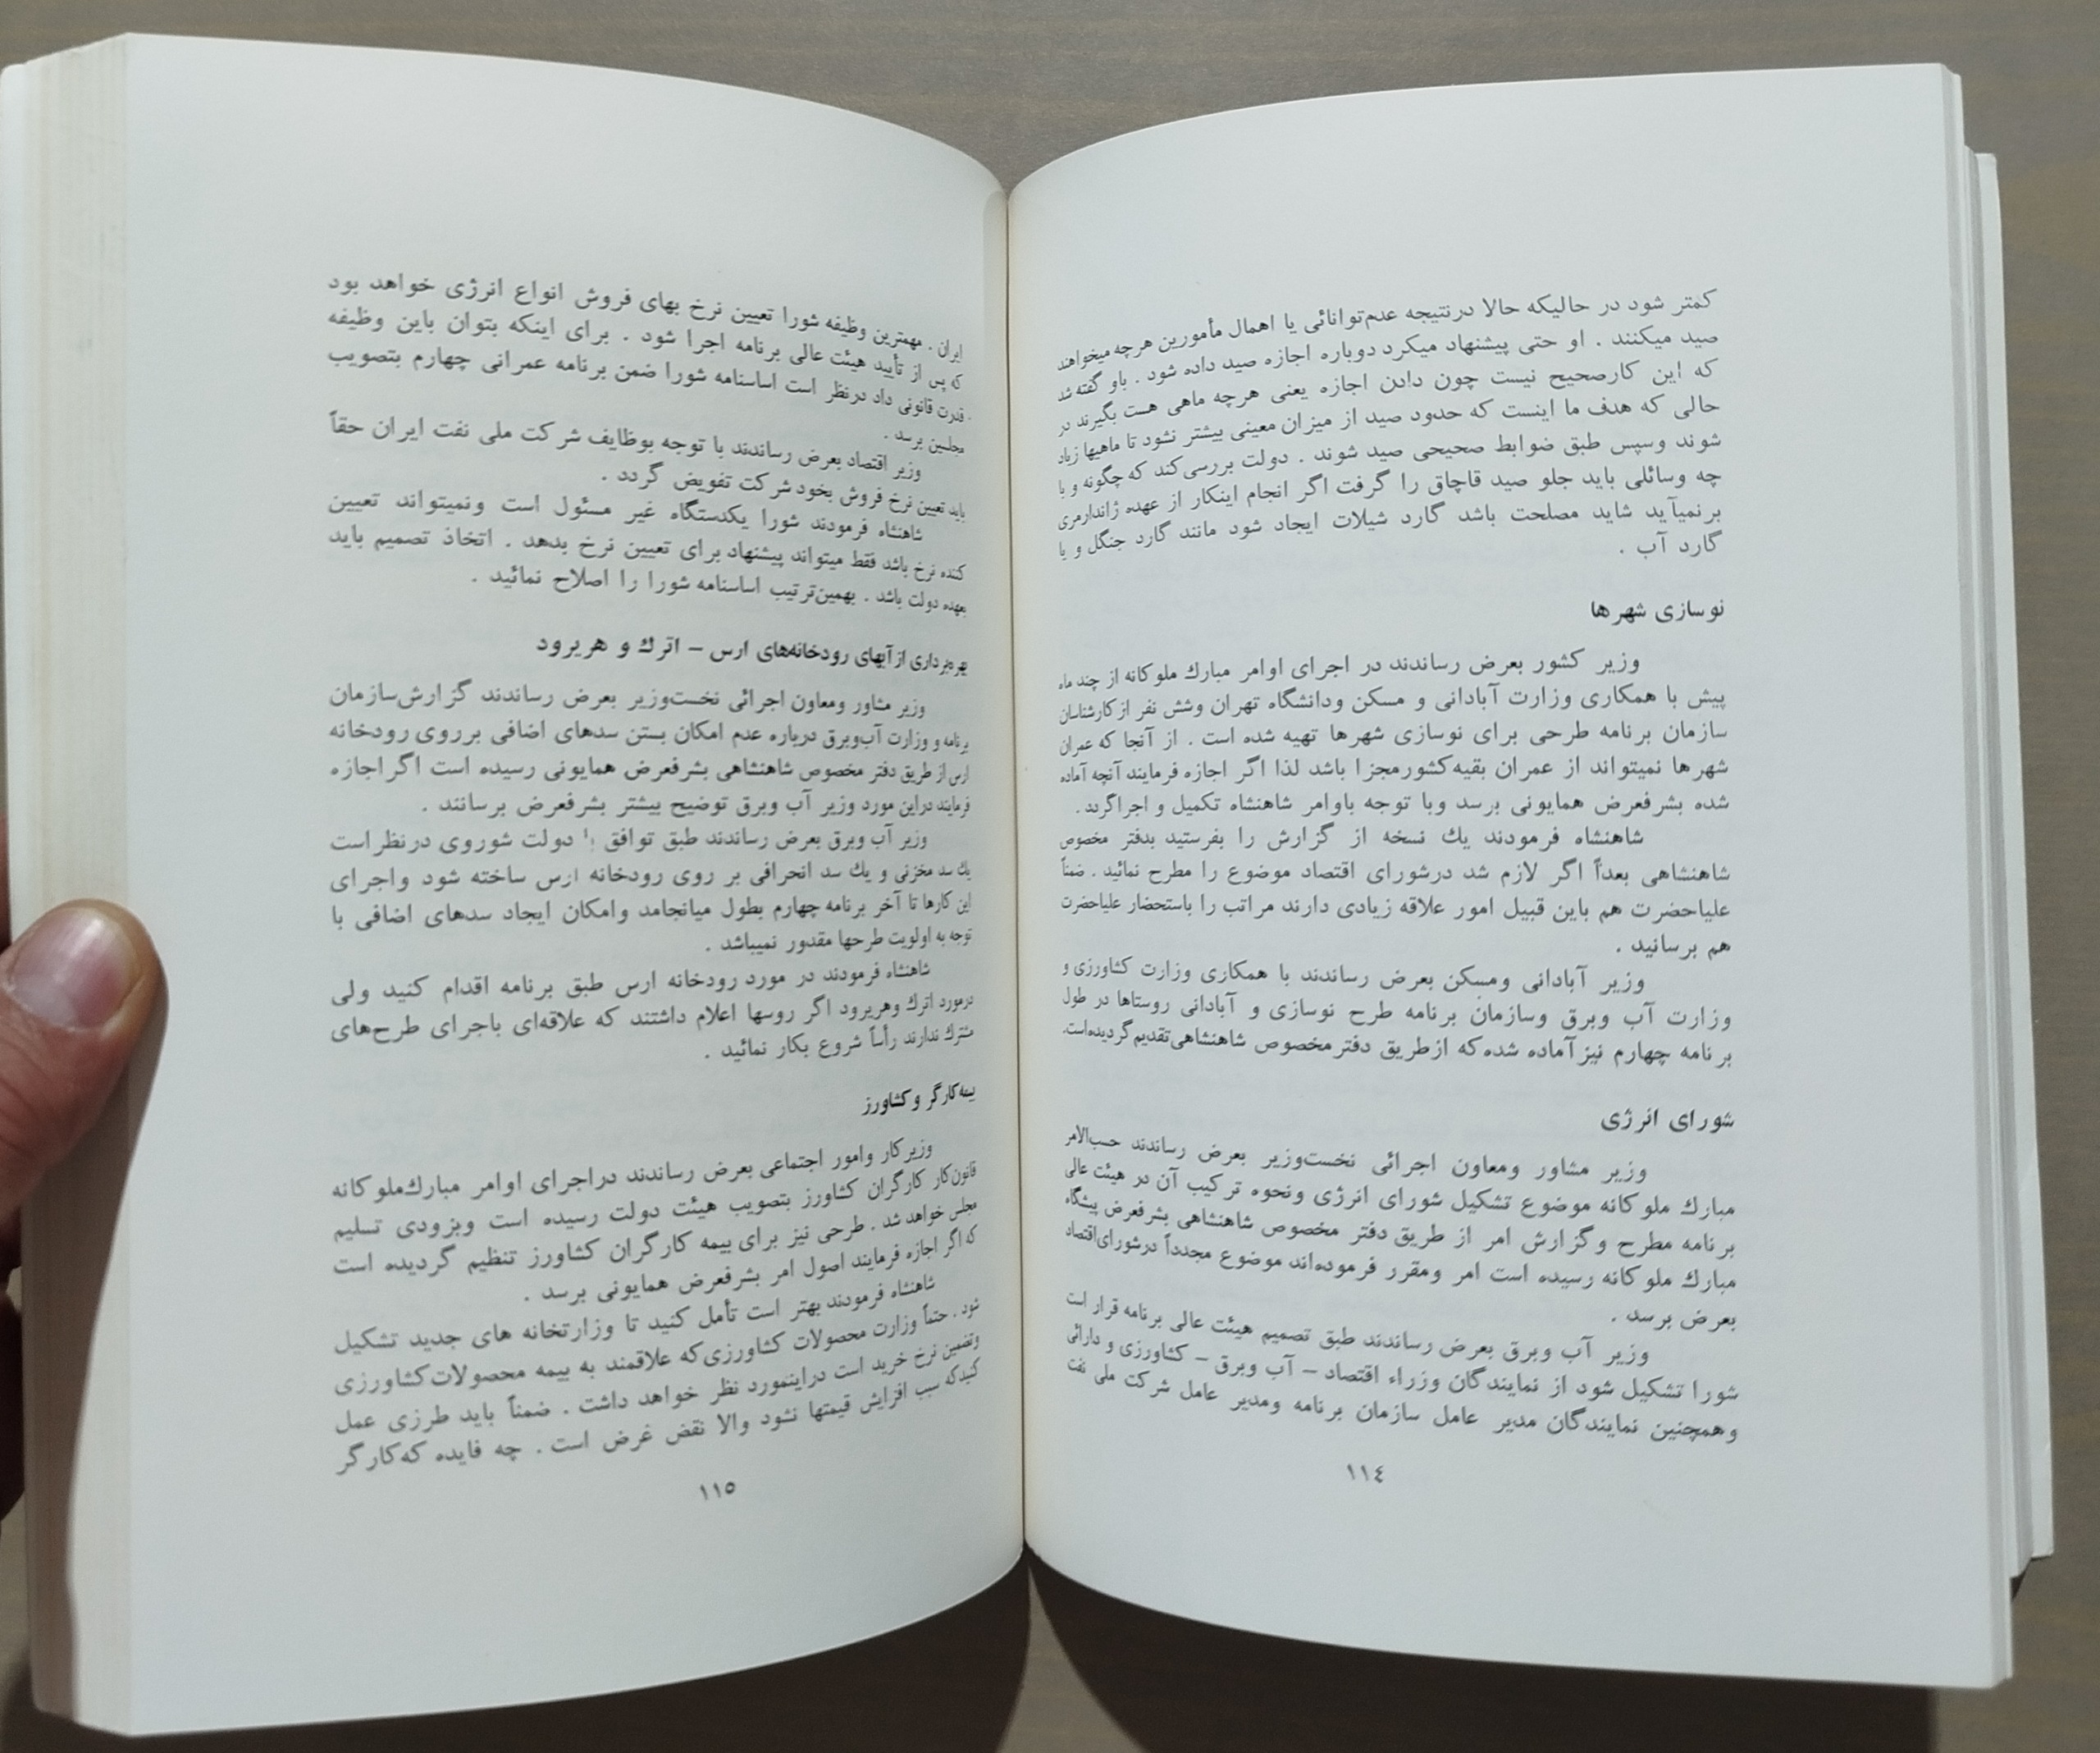 کمتر شود در حالیکه حالا درنتیجه عدم‌توانائی یا اهمال مأمورین هرچه میخواهند
صید میکنند . او حتی پیشنهاد میکرد دوباره اجازه صید داده شود . باو گفته شد
که این کارصحیح نیست چون دادن اجازه یعنی هرچه ماهی هست بگیرند در
حالی که هدف ما اینست که حدود صید از میزان معینی بیشتر نشود تا ماهیها زیاد
شوند وسپس طبق ضوابط صحیحی صید شوند . دولت بررسی‌کند که چگونه و با
چه وسائلی باید جلو صید قاچاق را گرفت اگر انجام اینکار از عهده ژاندارمری
برنمیآید شاید مصلحت باشد گارد شیلات ایجاد شود مانند گارد جنگل و یا
گارد آب .
نوسازی شهرها
وزیر کشور بعرض رساندند در اجرای اوامر مبارك ملوکانه از چند ماه
پیش با همکاری وزارت آبادانی و مسکن ودانشگاه تهران وشش نفر ازکارشناسان
سازمان برنامه طرحی برای نوسازی شهرها تهیه شده است . از آنجا که عمران
شهرها نمیتواند از عمران بقیه‌کشورمجزا باشد لذا اگر اجازه فرمایند آنچه آماده
شده بشرفعرض همایونی برسد وبا توجه باوامر شاهنشاه تکمیل و اجراگردد .
شاهنشاه فرمودند يك نسخه از گزارش را بفرستید بدفتر مخصوص
شاهنشاهی بعداً اگر لازم شد درشورای اقتصاد موضوع را مطرح نمائید . ضمناً
علیاحضرت هم باین قبیل امور علاقه زیادی دارند مراتب را باستحضار علیاحضرت
هم برسانید .
وزیر آبادانی ومسکن بعرض رساندند با همکاری وزارت کشاورزی و
وزارت آب وبرق وسازمان برنامه طرح نوسازی و آبادانی روستاها در طول
برنامه چهارم نیزآماده شده‌که ازطریق دفترمخصوص شاهنشاهی‌تقدیم‌گردیده‌است.
شورای انرژی
وزیر مشاور ومعاون اجرائی نخست‌وزیر بعرض رساندند حسب‌الامر
مبارك ملوکانه موضوع تشکیل شورای انرژی ونحوه ترکیب آن در هیئت عالی
برنامه مطرح وگزارش امر از طریق دفتر مخصوص شاهنشاهی بشرفعرض پیشگاه
مبارك ملوکانه رسیده است امر ومقرر فرموده‌اند موضوع مجدداً درشورای‌اقتصاد
بعرض برسد .
وزیر آب وبرق بعرض رساندند طبق تصمیم هیئت عالی برنامه قرار است
شورا تشکیل شود از نمایندگان وزراء اقتصاد – آب وبرق – کشاورزی و دارائی
وهمچنین نمایندگان مدیر عامل سازمان برنامه ومدیر عامل شرکت ملی نفت
١١٤
ایران . مهمترین وظیفه شورا تعیین نرخ بهای فروش انواع انرژی خواهد بود
که پس از تأیید هیئت عالی برنامه اجرا شود . برای اینکه بتوان باین وظیفه
قدرت قانونی داد درنظر است اساسنامه شورا ضمن برنامه عمرانی چهارم بتصویب
مجلسین برسد .
وزیر اقتصاد بعرض رساندند با توجه بوظایف شرکت ملی نفت ایران حقاً
باید تعیین نرخ فروش بخود شرکت تفویض گردد .
شاهنشاه فرمودند شورا یکدستگاه غیر مسئول است ونمیتواند تعیین
کننده نرخ باشد فقط میتواند پیشنهاد برای تعیین نرخ بدهد . اتخاذ تصمیم باید
بعهده دولت باشد . بهمین‌ترتیب اساسنامه شورا را اصلاح نمائید .
بهره‌برداری ازآبهای رودخانه‌های ارس – اترك و هریرود
وزیر مشاور ومعاون اجرائی نخست‌وزیر بعرض رساندند گزارش‌سازمان
برنامه و وزارت آب‌وبرق درباره عدم امکان بستن سدهای اضافی برروی رودخانه
ارس از طریق دفتر مخصوص شاهنشاهی بشرفعرض همایونی رسیده است اگراجازه
فرمایند دراین مورد وزیر آب وبرق توضیح بیشتر بشرفعرض برسانند .
وزیر آب وبرق بعرض رساندند طبق توافق با دولت شوروی درنظراست
يك سد مخزنی و يك سد انحرافی بر روی رودخانه ارس ساخته شود واجرای
این کارها تا آخر برنامه چهارم بطول میانجامد وامکان ایجاد سدهای اضافی با
توجه به اولویت طرحها مقدور نمیباشد .
شاهنشاه فرمودند در مورد رودخانه ارس طبق برنامه اقدام کنید ولی
درمورد اترك وهریرود اگر روسها اعلام داشتند که علاقه‌ای باجرای طرح‌های
مشترك ندارند رأساً شروع بکار نمائید .
بیمه‌کارگر وکشاورز
وزیرکار وامور اجتماعی بعرض رساندند دراجرای اوامر مبارك‌ملوکانه
قانون‌کار کارگران کشاورز بتصویب هیئت دولت رسیده است وبزودی تسلیم
مجلس خواهد شد . طرحی نیز برای بیمه کارگران کشاورز تنظیم گردیده است
که اگر اجازه فرمایند اصول امر بشرفعرض همایونی برسد .
شاهنشاه فرمودند بهتر است تأمل کنید تا وزارتخانه های جدید تشکیل
شود . حتماً وزارت محصولات کشاورزی‌که علاقمند به بیمه محصولات‌کشاورزی
وتضمین نرخ خرید است دراینمورد نظر خواهد داشت . ضمناً باید طرزی عمل
کنیدکه سبب افزایش قیمتها نشود والا نقض غرض است . چه فایده که‌کارگر
١١٥